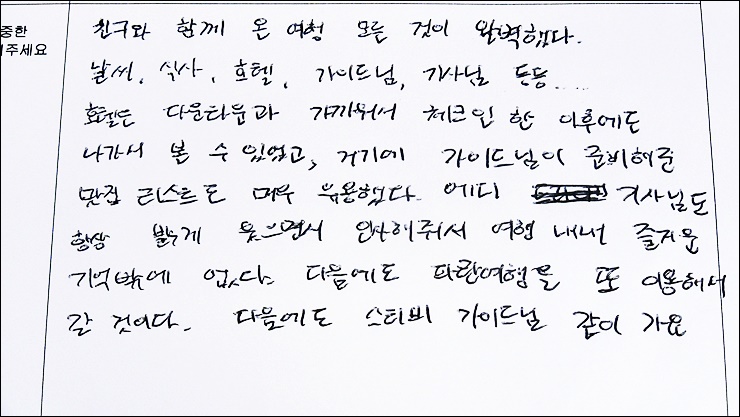 중한
어주세요
친구와 함께 온 여행 모든 것이 완벽했다.
날씨, 식사, 호텔, 가이드님, 기사님 등등.....
호텔은 다운타운과 가까워서 체크인 한 이후에도
나가서 볼 수 있었고, 거기에 가이드님이 준비해준
맛집 리스트도 매우 유용했다. 에디 기사님도
항상 밝게 웃으면서 인사해줘서 여행 내내 즐거운
기억밖에 없다. 다음에도 파란여행을 또 이용해서
갈 것이다. 다음에도 스티비 가이드님 같이 가요